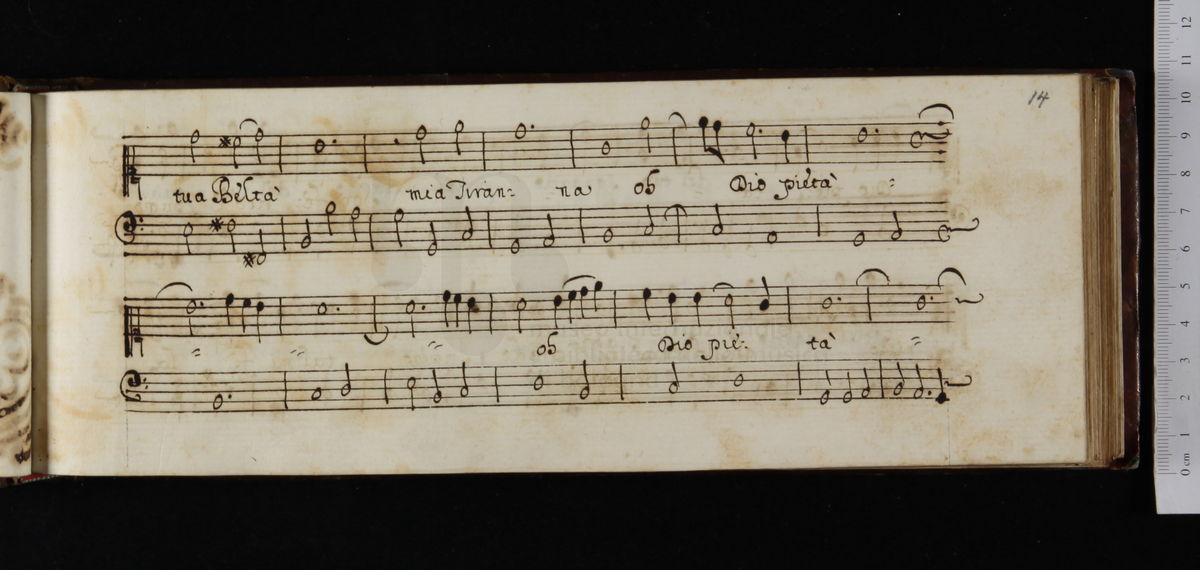 14
tua Beltà mia Tiran= na oh Dio pietà =
= = = oh Dio pie= tà =
0 cm 1 2 3 4 5 6 7 8 9 10 11 12